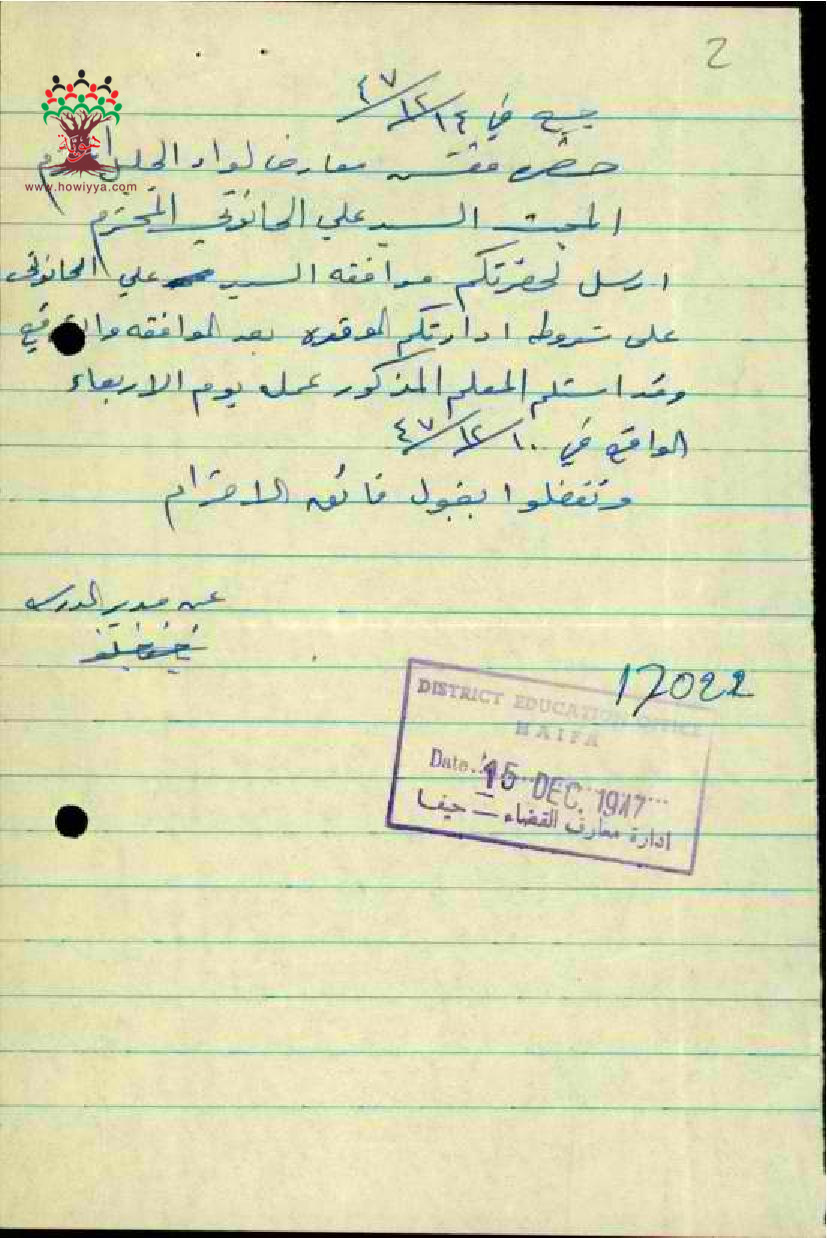 2
جبع في ١٤/١٢/٤٧
حضرة مفتش معارف لواء الجليل
www.howiyya.com
المبحث السيد علي الحانوتي المحترم
ارسل لحضرتكم موافقه السيد علي الحانوتي
على شروط ادارتكم الموقره بعد الموافقه
وقد استلم المعلم المذكور عمله يوم الاربعاء
الواقع في ١٠/١٢/٤٧
وتفضلوا بقبول فائق الاحترام
عن مدير المدرسه
17022
DISTRICT EDUCATION OFFICE
HAIFA
Date 15 DEC. 1947
ادارة معارف القضاء — حيفا